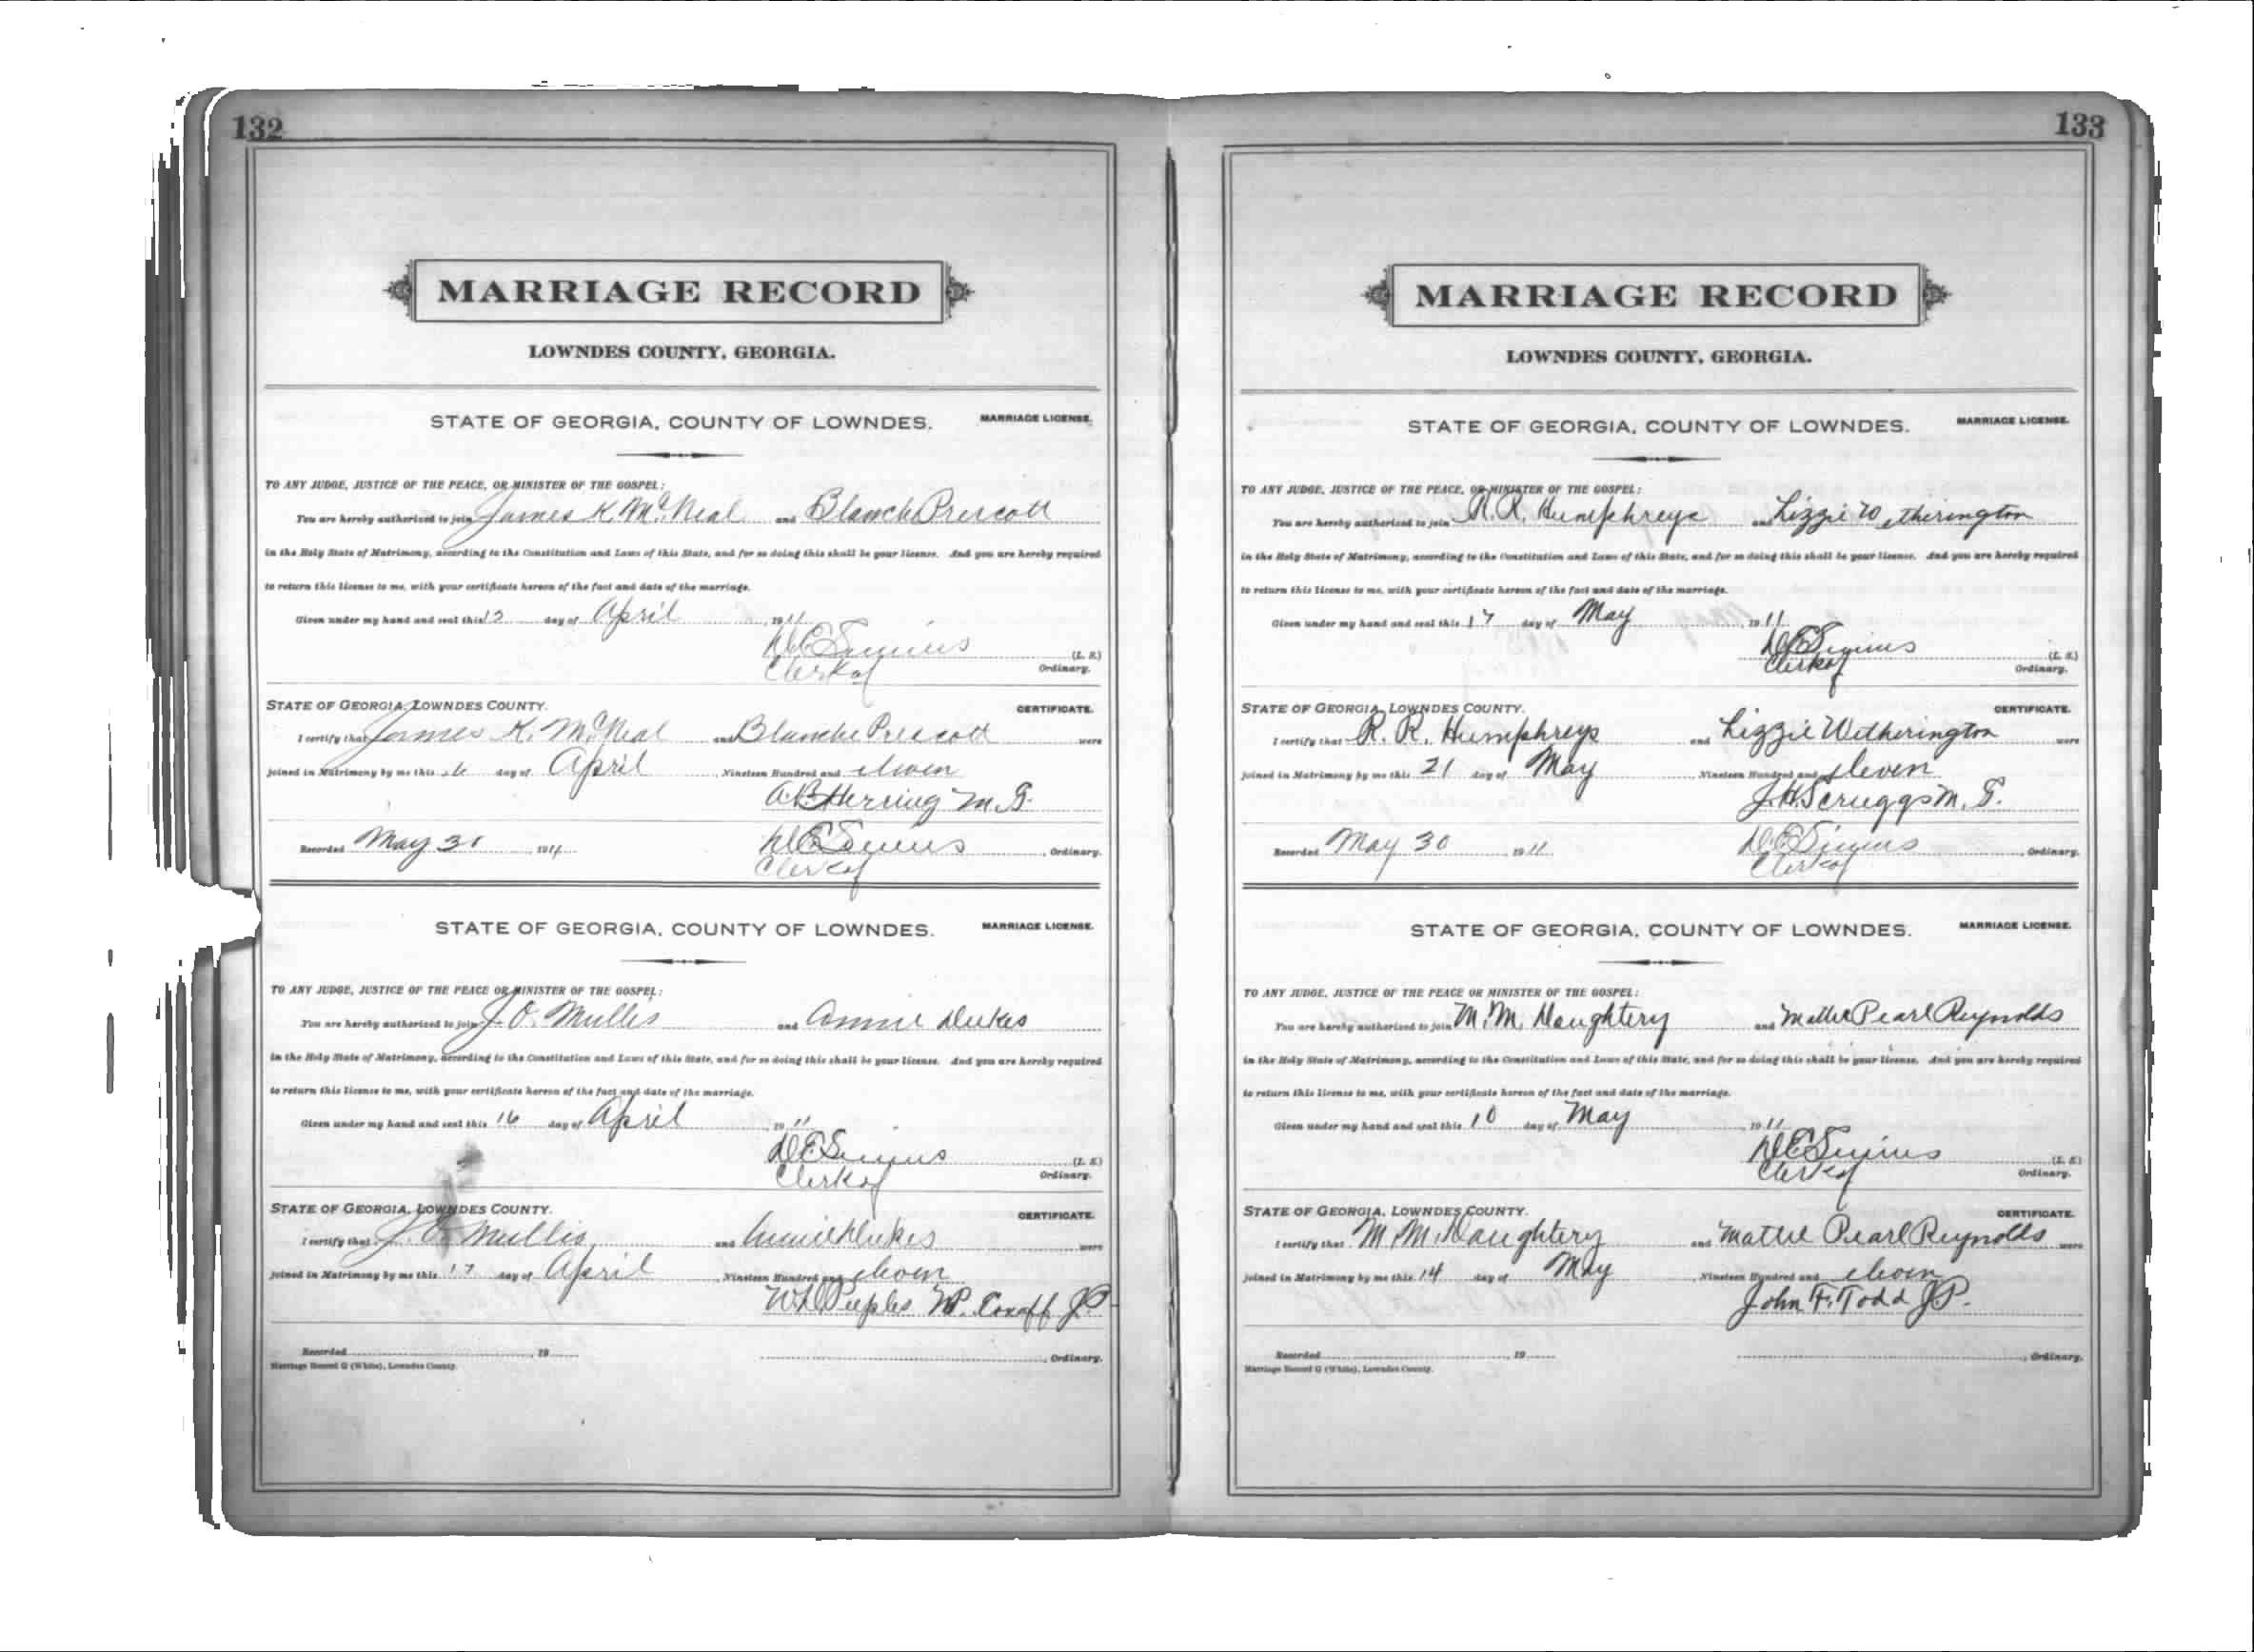 132
MARRIAGE RECORD
LOWNDES COUNTY, GEORGIA.
STATE OF GEORGIA, COUNTY OF LOWNDES. MARRIAGE LICENSE.
TO ANY JUDGE, JUSTICE OF THE PEACE, OR MINISTER OF THE GOSPEL:
You are hereby authorized to join James K. McNeal and Blanch Prescott
in the Holy State of Matrimony, according to the Constitution and Laws of this State, and for so doing this shall be your license. And you are hereby required
to return this license to me, with your certificate hereon of the fact and date of the marriage.
Given under my hand and seal this 12 day of April, 1911
(L. S.)
Clerk of Ordinary.
STATE OF GEORGIA, LOWNDES COUNTY. CERTIFICATE.
I certify that James K. McNeal and Blanche Prescott were
joined in Matrimony by me this day of April, Nineteen Hundred and eleven
A. B. Herring M. G.
Recorded May 30, 1911, Ordinary.
Clerk of
STATE OF GEORGIA, COUNTY OF LOWNDES. MARRIAGE LICENSE.
TO ANY JUDGE, JUSTICE OF THE PEACE OR MINISTER OF THE GOSPEL:
You are hereby authorized to join J. O. Mullis and Annie Dukes
in the Holy State of Matrimony, according to the Constitution and Laws of this State, and for so doing this shall be your license. And you are hereby required
to return this license to me, with your certificate hereon of the fact and date of the marriage.
Given under my hand and seal this 16 day of April, 1911
(L. S.)
Clerk of Ordinary.
STATE OF GEORGIA, LOWNDES COUNTY. CERTIFICATE.
I certify that J. O. Mullis and Annie Dukes were
joined in Matrimony by me this 17 day of April, Nineteen Hundred and eleven
Peeples J.P.
Recorded, 19, Ordinary.
Marriage Record G (White), Lowndes County.
133
MARRIAGE RECORD
LOWNDES COUNTY, GEORGIA.
STATE OF GEORGIA, COUNTY OF LOWNDES. MARRIAGE LICENSE.
TO ANY JUDGE, JUSTICE OF THE PEACE, OR MINISTER OF THE GOSPEL:
You are hereby authorized to join R. R. Humphreys and Lizzie Wetherington
in the Holy State of Matrimony, according to the Constitution and Laws of this State, and for so doing this shall be your license. And you are hereby required
to return this license to me, with your certificate hereon of the fact and date of the marriage.
Given under my hand and seal this 17 day of May, 1911
(L. S.)
Clerk of Ordinary.
STATE OF GEORGIA, LOWNDES COUNTY. CERTIFICATE.
I certify that R. R. Humphreys and Lizzie Witherington were
joined in Matrimony by me this 21 day of May, Nineteen Hundred and eleven
J. H. Scruggs M. G.
Recorded May 30 1911, Ordinary.
Clerk of
STATE OF GEORGIA, COUNTY OF LOWNDES. MARRIAGE LICENSE.
TO ANY JUDGE, JUSTICE OF THE PEACE OR MINISTER OF THE GOSPEL:
You are hereby authorized to join M. M. Daughtery and Mattie Pearl Reynolds
in the Holy State of Matrimony, according to the Constitution and Laws of this State, and for so doing this shall be your license. And you are hereby required
to return this license to me, with your certificate hereon of the fact and date of the marriage.
Given under my hand and seal this 10 day of May, 1911
(L. S.)
Clerk of Ordinary.
STATE OF GEORGIA, LOWNDES COUNTY. CERTIFICATE.
I certify that M. M. Daughtery and Mattie Pearl Reynolds were
joined in Matrimony by me this 14 day of May, Nineteen Hundred and eleven
John F. Todd J.P.
Recorded, 19, Ordinary.
Marriage Record G (White), Lowndes County.